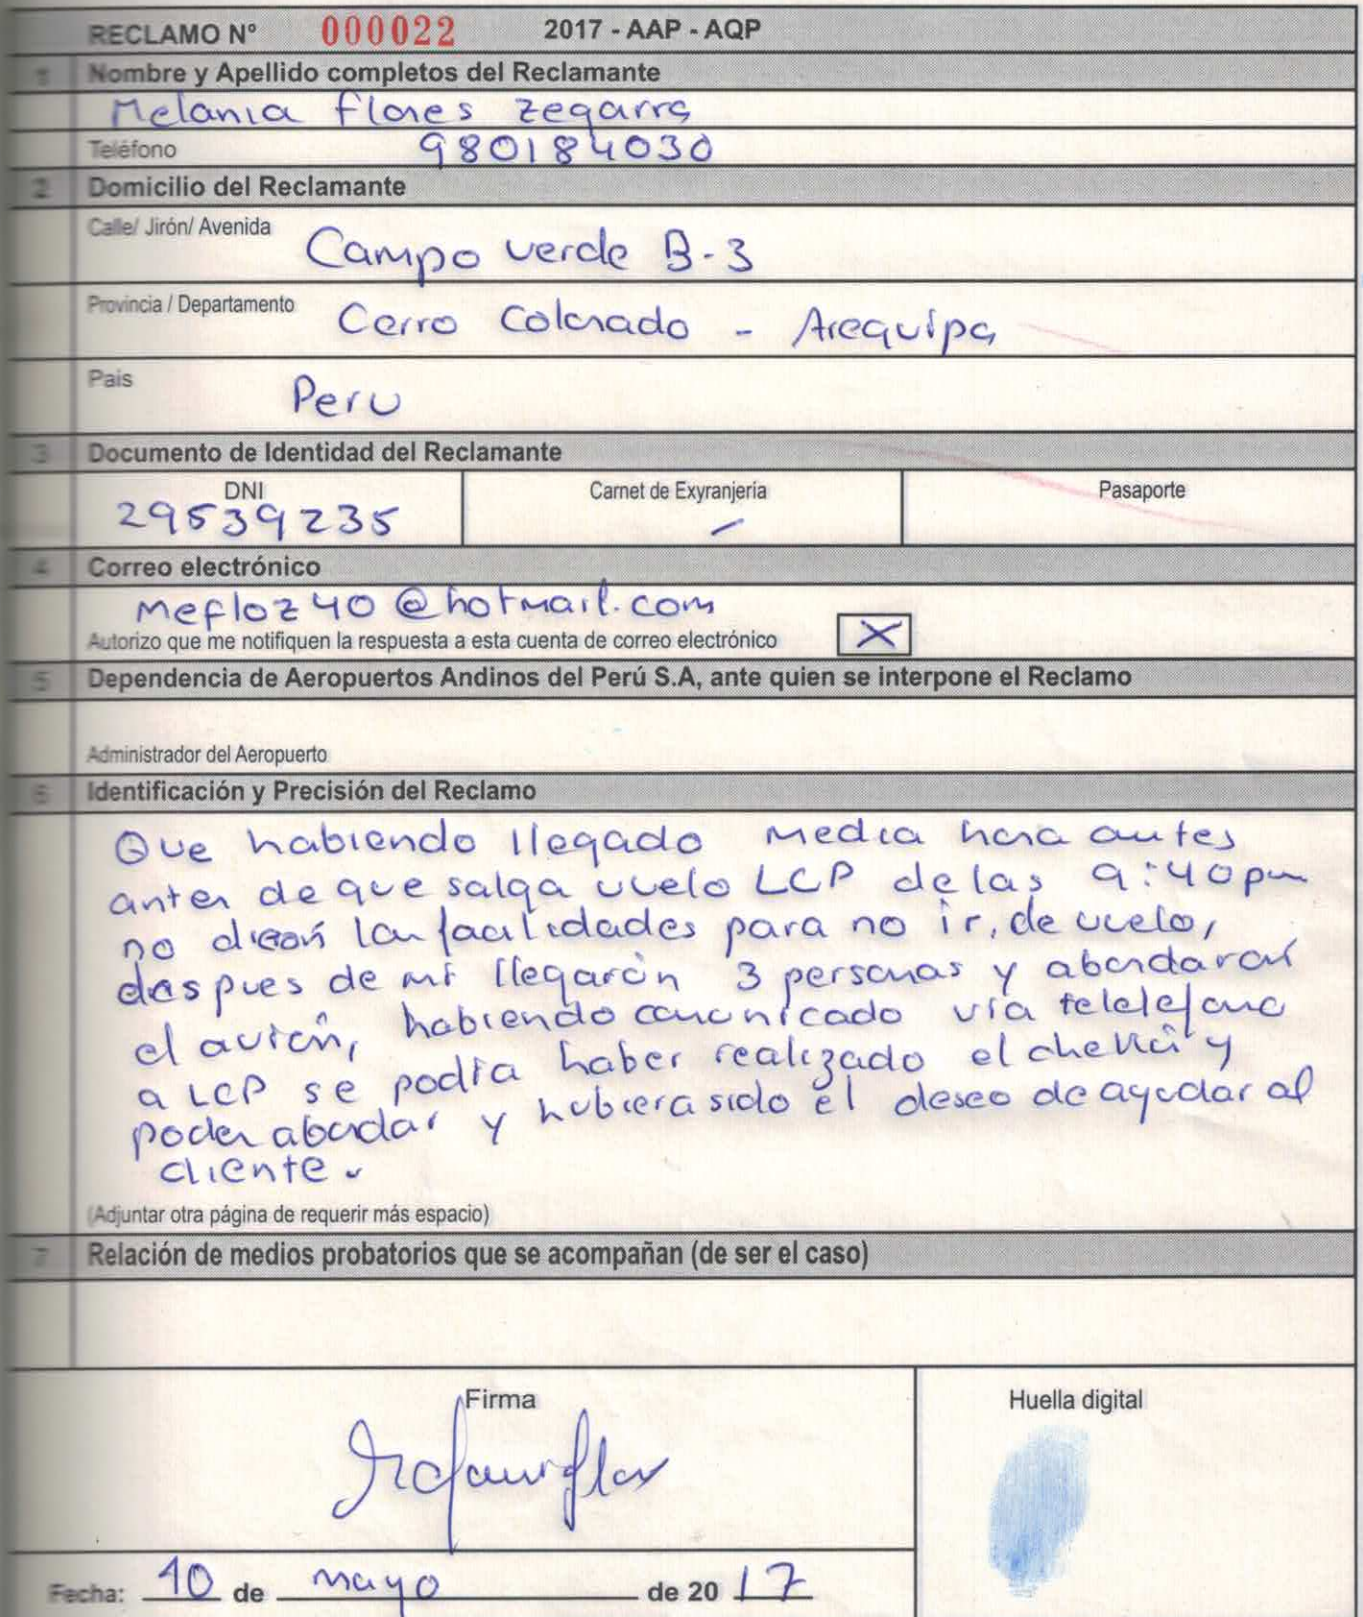 RECLAMO Nº 000022 2017 - AAP - AQP
1 Nombre y Apellido completos del Reclamante
Melania Flores Zegarra
Teléfono 980184030
2 Domicilio del Reclamante
Calle/ Jirón/ Avenida Campo verde B-3
Provincia / Departamento Cerro Colorado - Arequipa
Pais Peru
3 Documento de Identidad del Reclamante
DNI Carnet de Exyranjería Pasaporte
29539235 -
4 Correo electrónico
mefloz40@hotmail.com
Autorizo que me notifiquen la respuesta a esta cuenta de correo electrónico X
5 Dependencia de Aeropuertos Andinos del Perú S.A, ante quien se interpone el Reclamo
Administrador del Aeropuerto
6 Identificación y Precisión del Reclamo
Que habiendo llegado media hora antes
antes de que salga vuelo LCP de las 9:40pm
no dieron las facilidades para no ir, de vuelo,
despues de mi llegarón 3 personas y abordaron
el avión, habiendo comunicado vía telelefono
a LCP se podía haber realizado el chekin y
poder abordar y hubiera sido el deseo de ayudar al
cliente.
(Adjuntar otra página de requerir más espacio)
7 Relación de medios probatorios que se acompañan (de ser el caso)
Firma Huella digital
Fecha: 10 de mayo de 2017